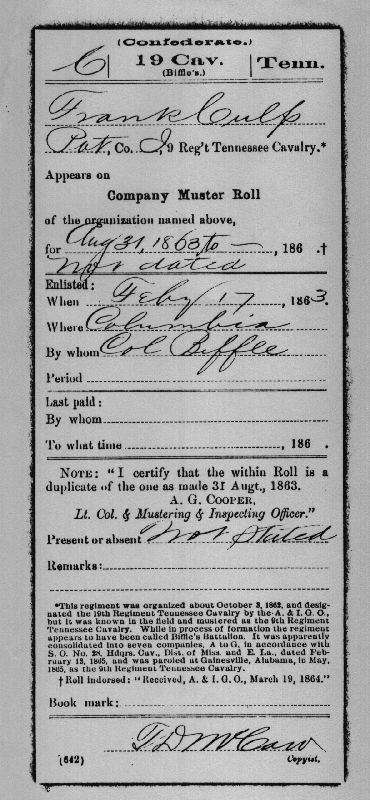 (Confederate.)
C | 19 Cav. | Tenn.
(Biffle's.)
Frank Culp
Pvt, Co. I, 9 Reg't Tennessee Cavalry.*
Appears on
Company Muster Roll
of the organization named above,
for Aug 31, 1863, to —, 186 .†
Not dated
Enlisted:
When Feby 17, 1863.
Where Columbia
By whom Col Biffle
Period
Last paid:
By whom
To what time , 186 .
NOTE: "I certify that the within Roll is a
duplicate of the one as made 31 Augt., 1863.
A. G. COOPER,
Lt. Col. & Mustering & Inspecting Officer."
Present or absent Not Stated
Remarks:
*This regiment was organized about October 3, 1862, and desig-
nated the 19th Regiment Tennessee Cavalry by the A. & I. G. O.,
but it was known in the field and mustered as the 9th Regiment
Tennessee Cavalry. While in process of formation the regiment
appears to have been called Biffle's Battalion. It was apparently
consolidated into seven companies, A to G, in accordance with
S. O. No. 28, Hdqrs. Cav., Dist. of Miss. and E. La., dated Feb-
ruary 13, 1865, and was paroled at Gainesville, Alabama, in May,
1865, as the 9th Regiment Tennessee Cavalry.
† Roll indorsed: "Received, A. & I. G. O., March 19, 1864."
Book mark:
T D McCaw
(642) Copyist.